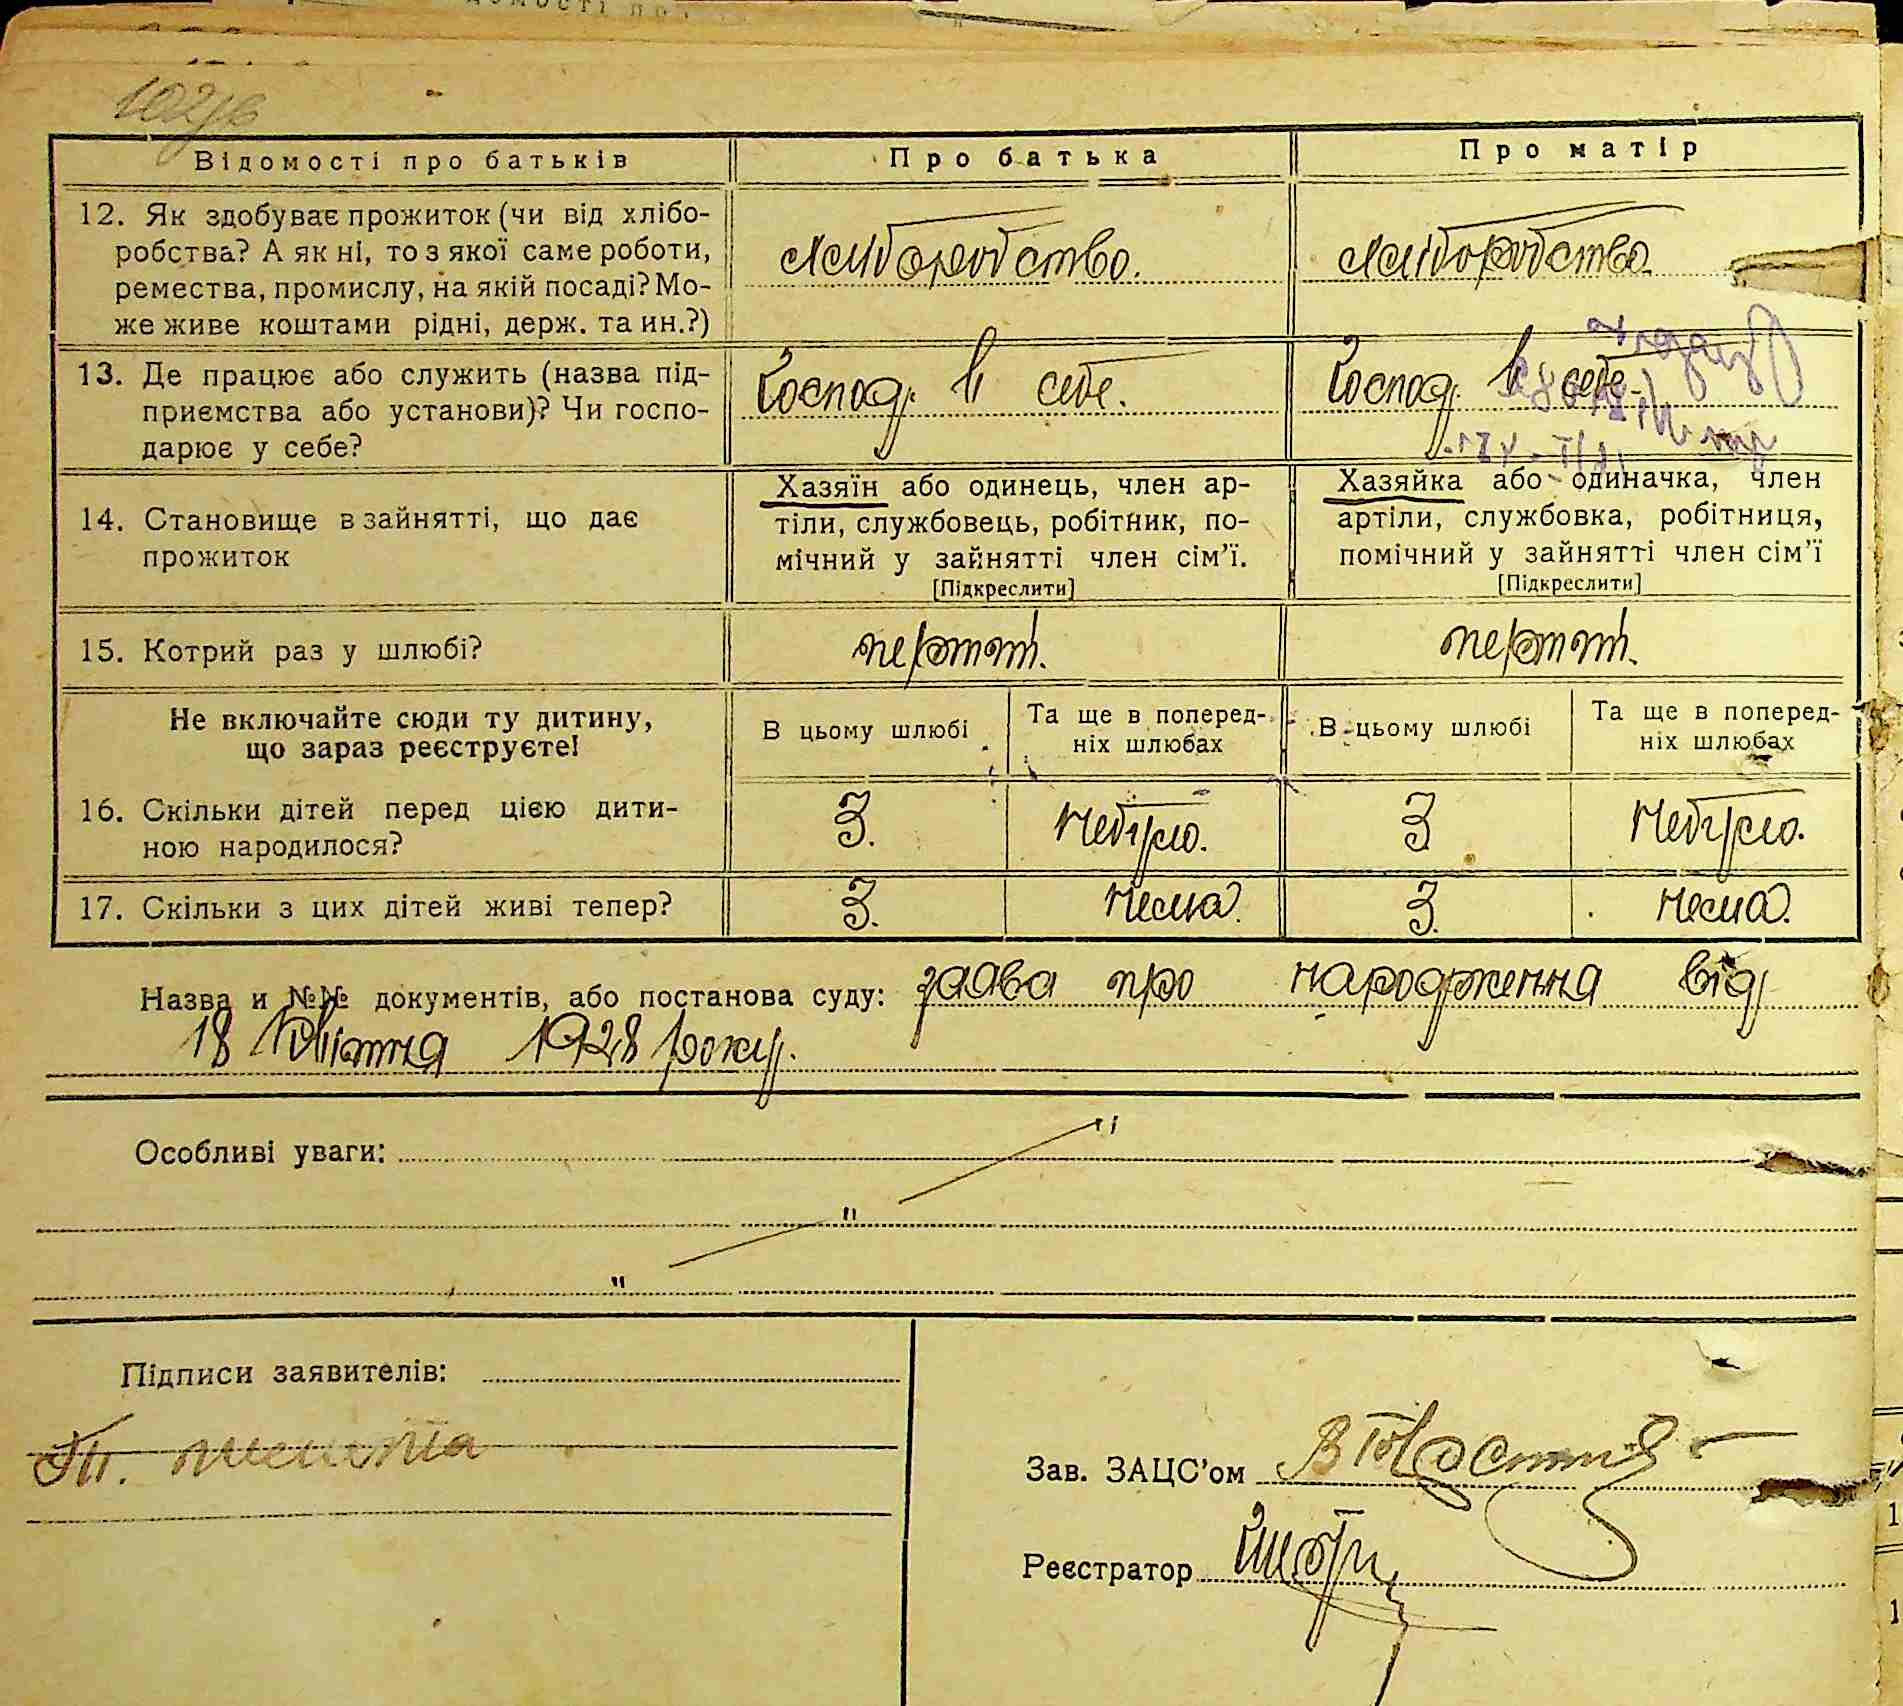 Відомості про батьків Про батька Про матір
12. Як здобуває прожиток (чи від хлібо-
робства? А як ні, то з якої саме роботи,
ремества, промислу, на якій посаді? Мо-
же живе коштами рідні, держ. та ин.?)
хліборобство. хліборобство.
13. Де працює або служить (назва під-
приємства або установи)? Чи госпо-
дарює у себе?
Господ. в себе. Господ. в себе.
14. Становище в зайнятті, що дає
прожиток
Хазяїн або одинець, член ар-
тіли, службовець, робітник, по-
мічний у зайнятті член сім'ї.
[Підкреслити]
Хазяйка або одиначка, член
артіли, службовка, робітниця,
помічний у зайнятті член сім'ї
[Підкреслити]
15. Котрий раз у шлюбі?
Не включайте сюди ту дитину,
що зараз реєструєте!
В цьому шлюбі
Та ще в поперед-
ніх шлюбах
В цьому шлюбі
Та ще в поперед-
ніх шлюбах
16. Скільки дітей перед цією дити-
ною народилося?
3. небуло. 3 небуло.
17. Скільки з цих дітей живі тепер? 3. нема. 3. нема.
Назва и №№ документів, або постанова суду: заява про народження від
18 Квітня 1928 року.
Особливі уваги:
Підписи заявителів:
Зав. ЗАЦС'ом
Реєстратор